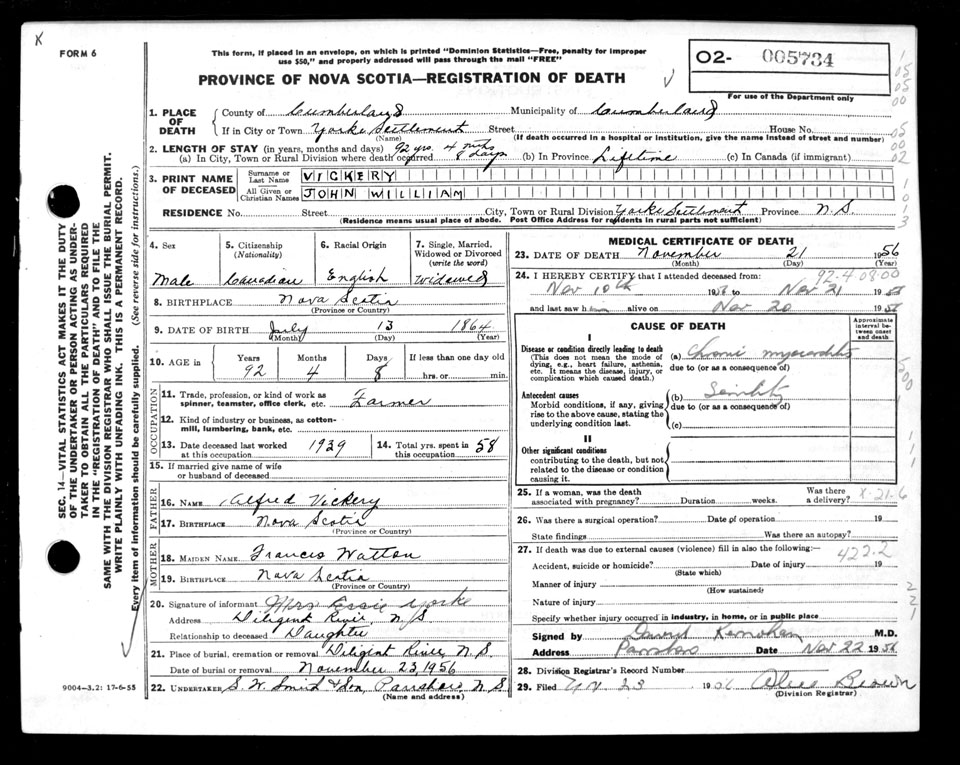 X
FORM 6
This form, if placed in an envelope, on which is printed "Dominion Statistics—Free, penalty for improper
use $50," and properly addressed will pass through the mail "FREE"
O2- 005734
For use of the Department only
PROVINCE OF NOVA SCOTIA—REGISTRATION OF DEATH
1. PLACE OF DEATH
County of Cumberland Municipality of Cumberland
If in City or Town Yorke Settlement Street House No.
(Name) (If death occurred in a hospital or institution, give the name instead of street and number)
2. LENGTH OF STAY (in years, months and days) 92 yrs. 4 mths 8 days
(a) In City, Town or Rural Division where death occurred (b) In Province Lifetime (c) In Canada (if immigrant)
3. PRINT NAME OF DECEASED
Surname or Last Name VICKERY
All Given or Christian Names JOHN WILLIAM
RESIDENCE No. Street City, Town or Rural Division Yorke Settlement Province N.S.
(Residence means usual place of abode. Post Office Address for residents in rural parts not sufficient)
4. Sex Male
5. Citizenship (Nationality) Canadian
6. Racial Origin English
7. Single, Married, Widowed or Divorced (write the word) Widowed
8. BIRTHPLACE Nova Scotia
(Province or Country)
9. DATE OF BIRTH July 13 1864
(Month) (Day) (Year)
10. AGE in Years Months Days If less than one day old
92 4 8 hrs. or min.
OCCUPATION
11. Trade, profession, or kind of work as spinner, teamster, office clerk, etc. Farmer
12. Kind of industry or business, as cotton-mill, lumbering, bank, etc.
13. Date deceased last worked at this occupation 1939
14. Total yrs. spent in this occupation 58
15. If married give name of wife or husband of deceased
FATHER
16. NAME Alfred Vickery
17. BIRTHPLACE Nova Scotia
(Province or Country)
MOTHER
18. MAIDEN NAME Francis Watton
19. BIRTHPLACE Nova Scotia
(Province or Country)
20. Signature of informant Mrs Essie Yorke
Address Diligent River, N.S
Relationship to deceased Daughter
21. Place of burial, cremation or removal Diligent River, N.S.
Date of burial or removal November 23, 1956
22. UNDERTAKER S. W. Smith & Son, Parrsboro, N.S
(Name and address)
9004-3.2: 17-6-55
MEDICAL CERTIFICATE OF DEATH
23. DATE OF DEATH November 21 1956
(Month) (Day) (Year)
92-4 08.00
24. I HEREBY CERTIFY that I attended deceased from:
Nov 10th 1956 to Nov 21 1956
and last saw him alive on Nov 20 1956
CAUSE OF DEATH
Approximate interval between onset and death
I
Disease or condition directly leading to death (a) Chronic myocarditis
(This does not mean the mode of dying, e.g., heart failure, asthenia, etc. It means the disease, injury, or complication which caused death.)
due to (or as a consequence of)
Antecedent causes (b) Senility
Morbid conditions, if any, giving rise to the above cause, stating the underlying condition last.
due to (or as a consequence of)
(c)
II
Other significant conditions
contributing to the death, but not related to the disease or condition causing it.
25. If a woman, was the death associated with pregnancy? Duration weeks. Was there a delivery?
X-21-6
26. Was there a surgical operation? Date of operation 19
State findings Was there an autopsy?
27. If death was due to external causes (violence) fill in also the following:—
422.2
Accident, suicide or homicide? Date of injury 19
(State which)
Manner of injury
(How sustained)
Nature of injury
Specify whether injury occurred in industry, in home, or in public place
Signed by M.D.
Address Parrsboro Date Nov 22 1956
28. Division Registrar's Record Number
29. Filed 23 1956 Alice Brown
(Division Registrar)
SEC. 14—VITAL STATISTICS ACT MAKES IT THE DUTY
OF THE UNDERTAKER OR PERSON ACTING AS UNDER-
TAKER TO OBTAIN ALL THE PARTICULARS REQUIRED
IN THE "REGISTRATION OF DEATH" AND TO FILE THE
SAME WITH THE DIVISION REGISTRAR WHO SHALL ISSUE THE BURIAL PERMIT.
WRITE PLAINLY WITH UNFADING INK. THIS IS A PERMANENT RECORD.
Every item of information should be carefully supplied. (See reverse side for instructions.)